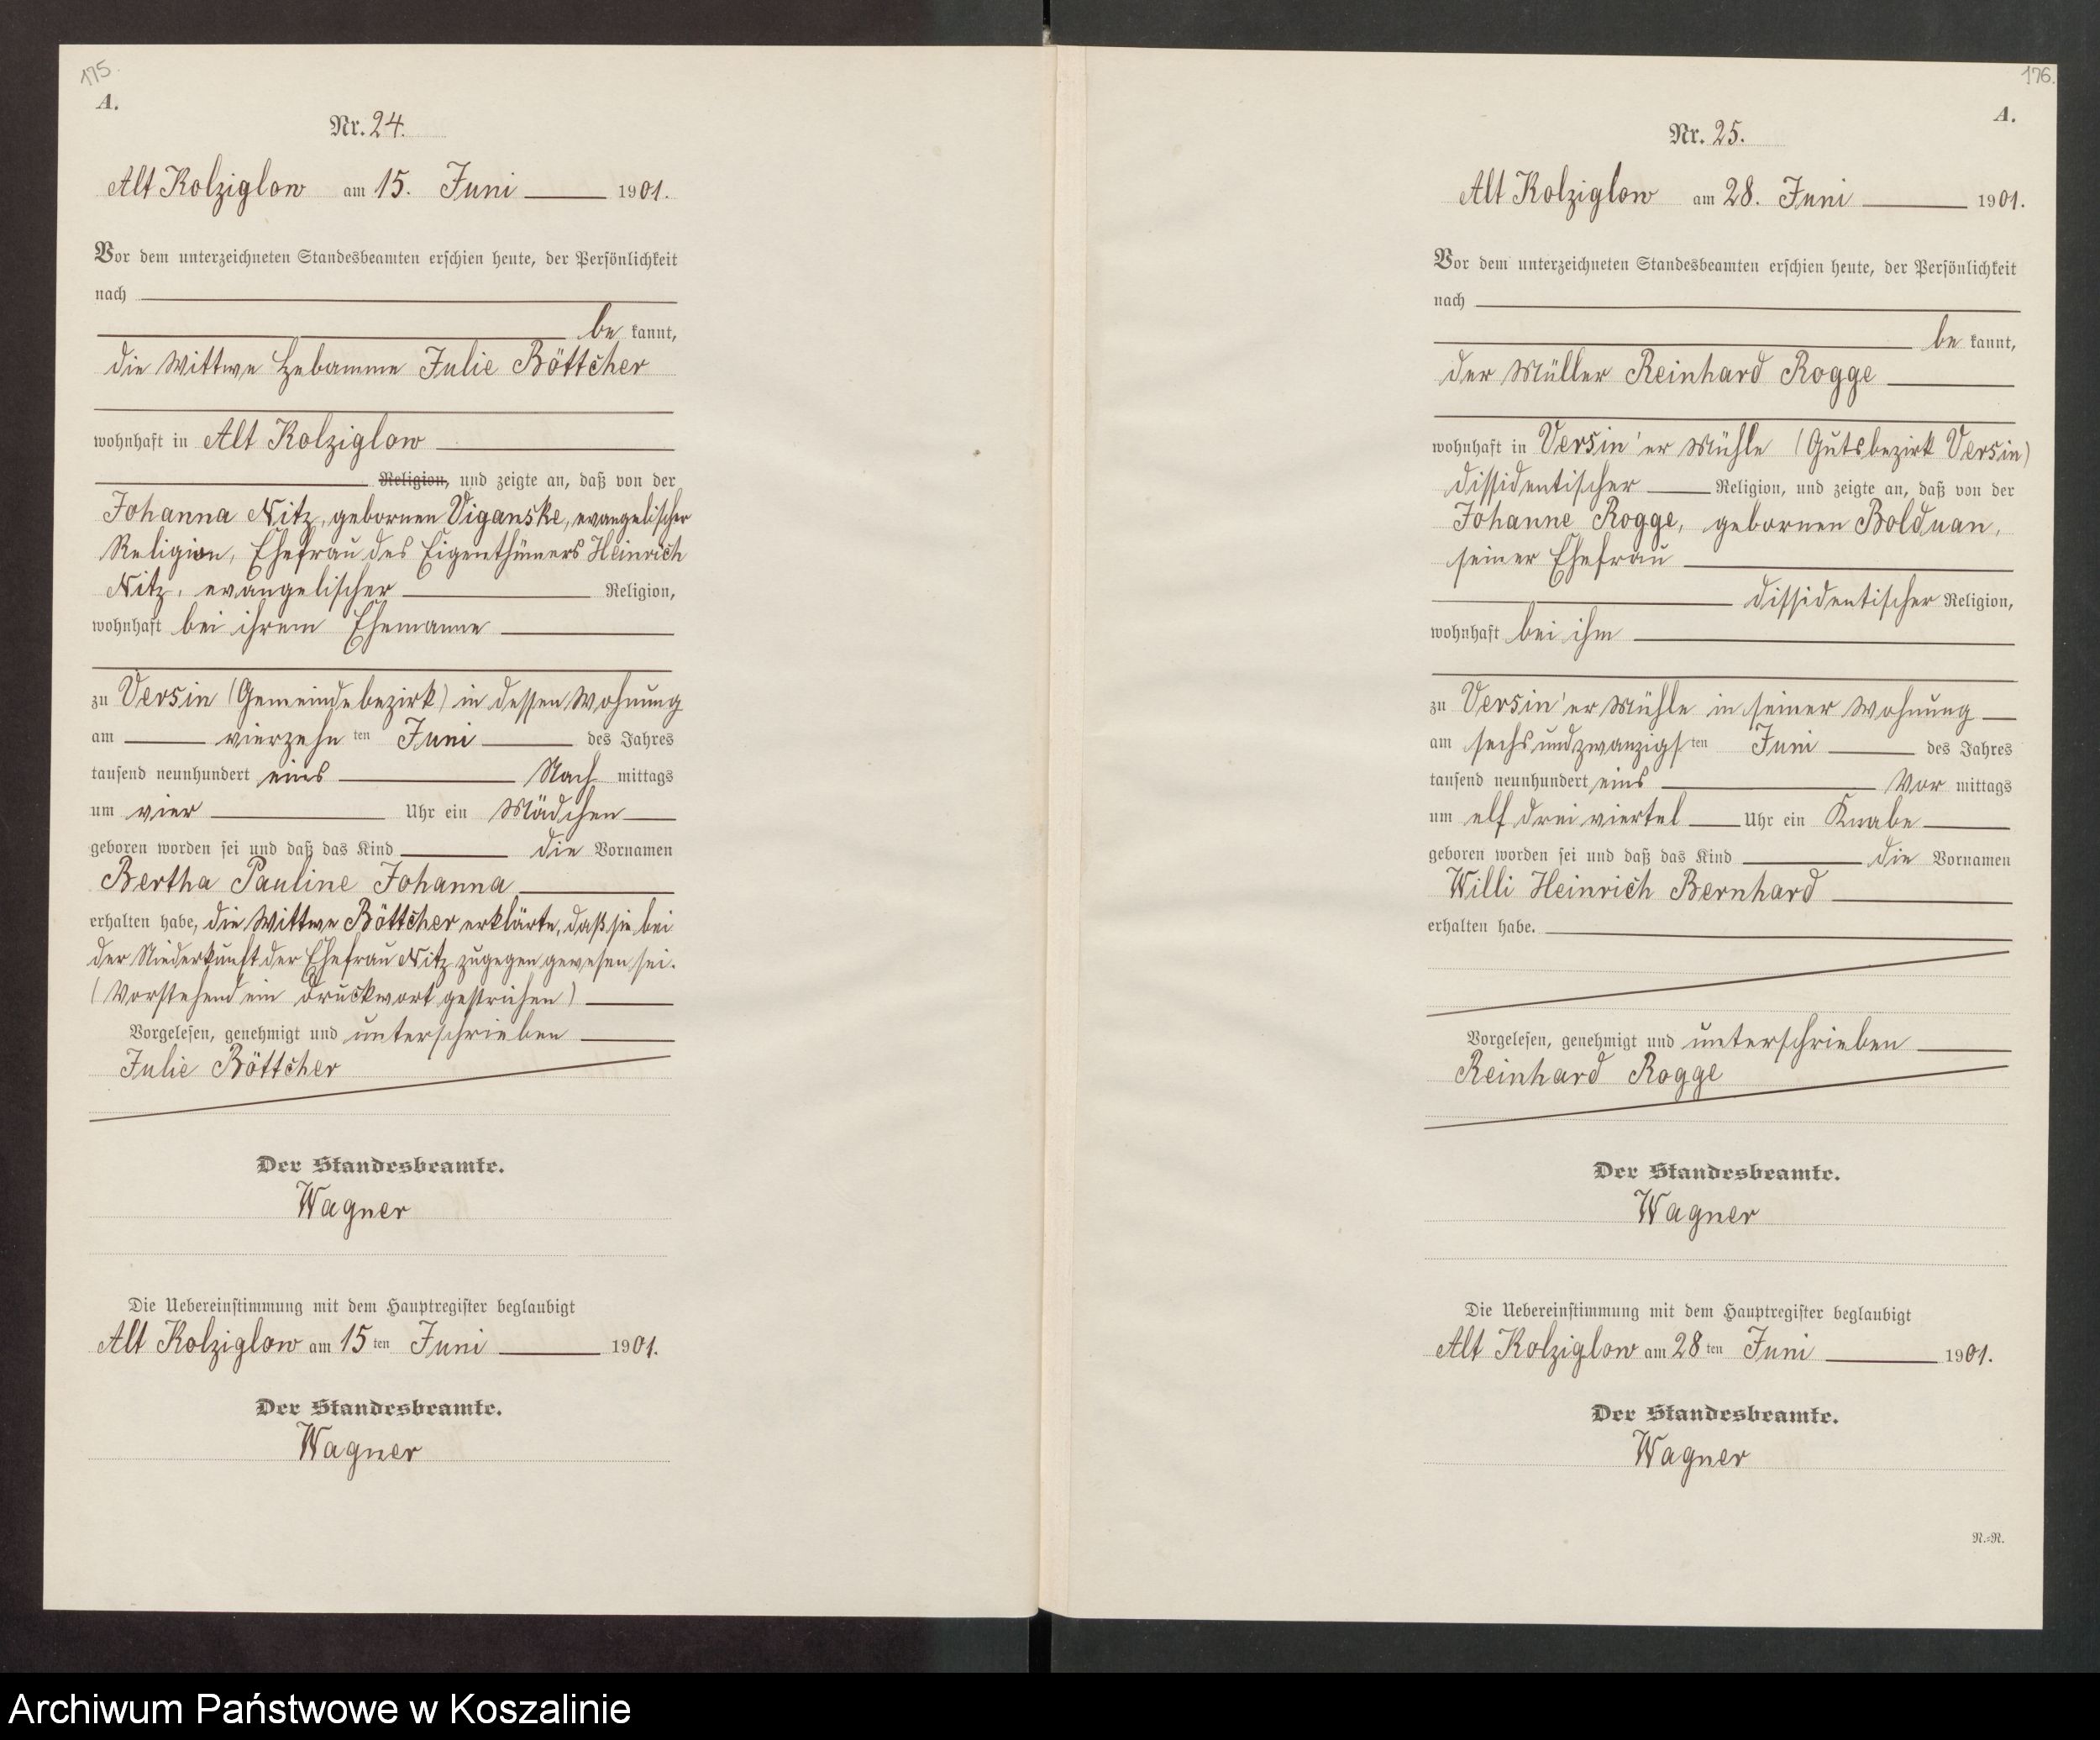 175.
A.
Nr. 24.
Alt Kolziglow am 15. Juni 1901.
Vor dem unterzeichneten Standesbeamten erschien heute, der Persönlichkeit
nach
be kannt,
die Wittwe Hebamme Julie Böttcher
wohnhaft in Alt Kolziglow
Religion, und zeigte an, daß von der
Johanna Nitz, gebornen Viganske, evangelischer
Religion, Ehefrau des Eigenthümers Heinrich
Nitz, evangelischer Religion,
wohnhaft bei ihrem Ehemanne
zu Versin (Gemeindebezirk) in dessen Wohnung
am vierzehn ten Juni des Jahres
tausend neunhundert eins Nach mittags
um vier Uhr ein Mädchen
geboren worden sei und daß das Kind die Vornamen
Bertha Pauline Johanna
erhalten habe, die Wittwe Böttcher erklärte, daß sie bei
der Niederkunft der Ehefrau Nitz zugegen gewesen sei.
(Vorstehend ein Druckwort gestrichen)
Vorgelesen, genehmigt und unterschrieben
Julie Böttcher
Der Standesbeamte.
Wagner
Die Uebereinstimmung mit dem Hauptregister beglaubigt
Alt Kolziglow am 15 ten Juni 1901.
Der Standesbeamte.
Wagner
176.
A.
Nr. 25.
Alt Kolziglow am 28. Juni 1901.
Vor dem unterzeichneten Standesbeamten erschien heute, der Persönlichkeit
nach
be kannt,
der Müller Reinhard Rogge
wohnhaft in Versin'er Mühle (Gutsbezirk Versin)
dissidentischer Religion, und zeigte an, daß von der
Johanne Rogge, gebornen Bolduan,
seiner Ehefrau
dissidentischer Religion,
wohnhaft bei ihm
zu Versin'er Mühle in seiner Wohnung
am sechsundzwanzigs ten Juni des Jahres
tausend neunhundert eins Vor mittags
um elf dreiviertel Uhr ein Knabe
geboren worden sei und daß das Kind die Vornamen
Willi Heinrich Bernhard
erhalten habe.
Vorgelesen, genehmigt und unterschrieben
Reinhard Rogge
Der Standesbeamte.
Wagner
Die Uebereinstimmung mit dem Hauptregister beglaubigt
Alt Kolziglow am 28 ten Juni 1901.
Der Standesbeamte.
Wagner
N.=R.
Archiwum Państwowe w Koszalinie